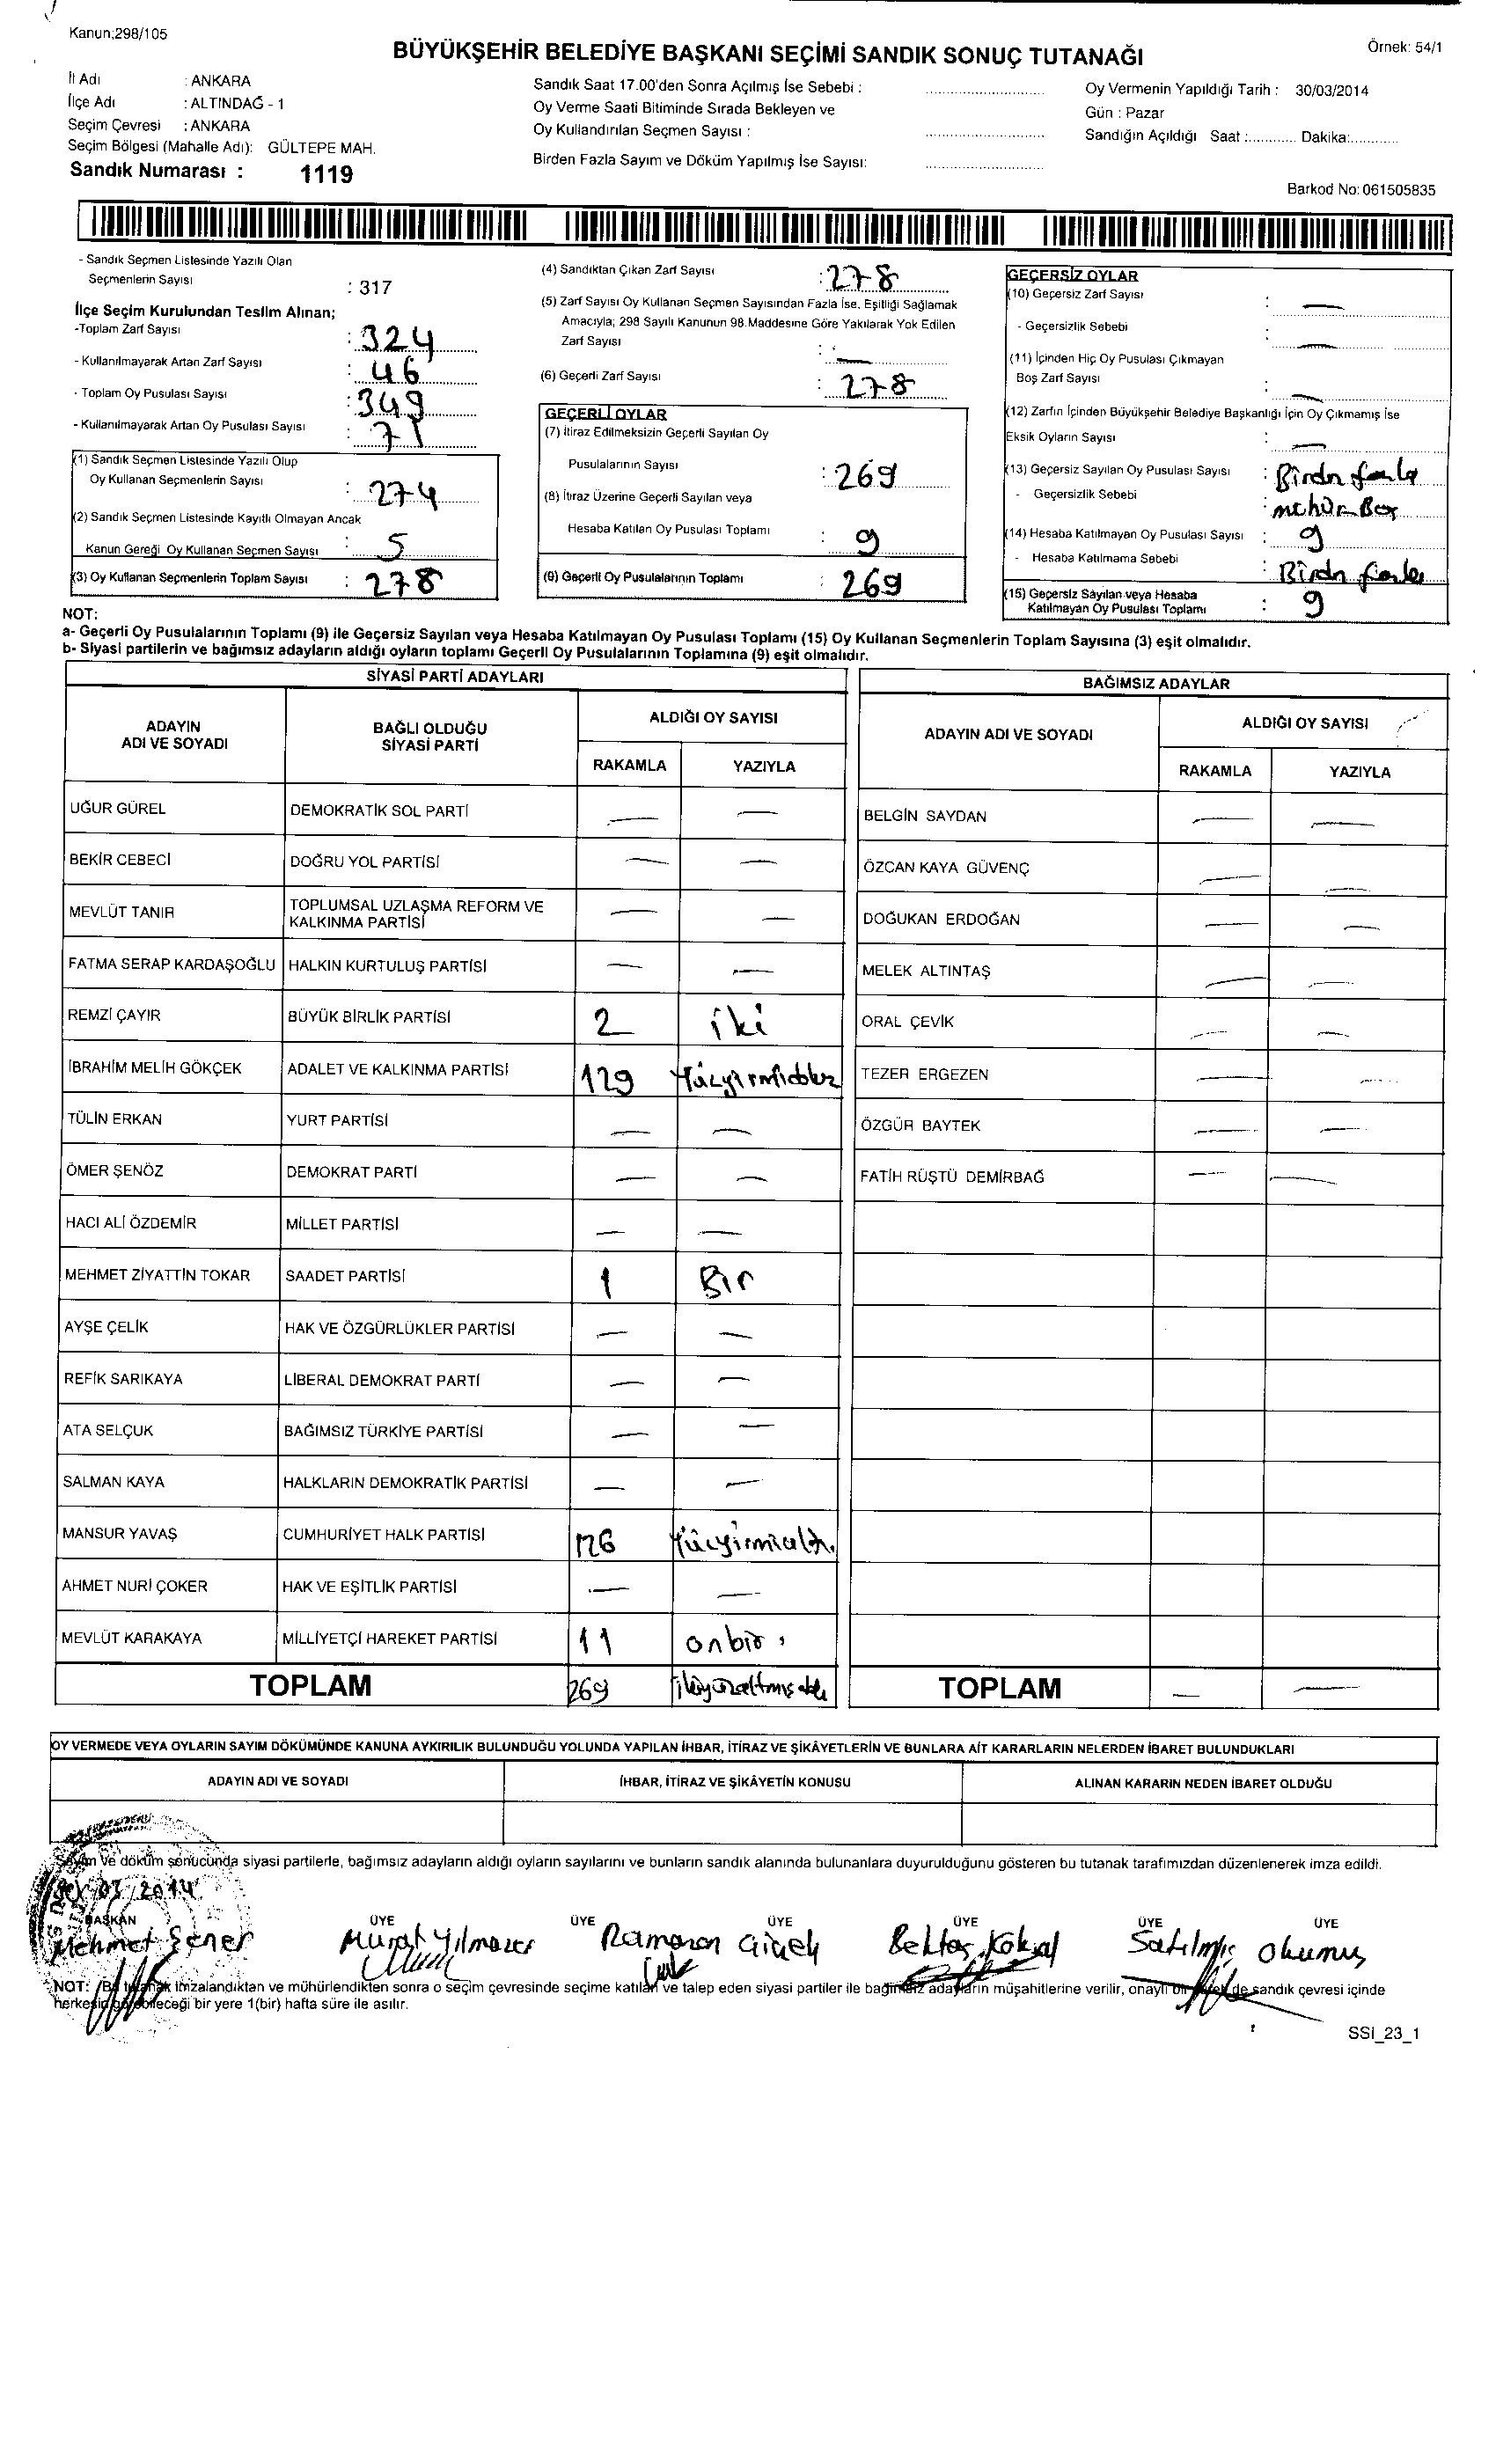 Kanun;298/105
Örnek: 54/1
BÜYÜKŞEHİR BELEDİYE BAŞKANI SEÇİMİ SANDIK SONUÇ TUTANAĞI
İl Adı : ANKARA
İlçe Adı : ALTINDAĞ - 1
Seçim Çevresi : ANKARA
Seçim Bölgesi (Mahalle Adı): GÜLTEPE MAH.
Sandık Numarası : 1119
Sandık Saat 17.00'den Sonra Açılmış İse Sebebi :
Oy Verme Saati Bitiminde Sırada Bekleyen ve
Oy Kullandırılan Seçmen Sayısı :
Birden Fazla Sayım ve Döküm Yapılmış İse Sayısı:
Oy Vermenin Yapıldığı Tarih : 30/03/2014
Gün : Pazar
Sandığın Açıldığı Saat :............ Dakika:............
Barkod No: 061505835
- Sandık Seçmen Listesinde Yazılı Olan
Seçmenlerin Sayısı : 317
İlçe Seçim Kurulundan Teslim Alınan;
-Toplam Zarf Sayısı : 324
- Kullanılmayarak Artan Zarf Sayısı : 46
- Toplam Oy Pusulası Sayısı : 349
- Kullanılmayarak Artan Oy Pusulası Sayısı : 71
(1) Sandık Seçmen Listesinde Yazılı Olup
Oy Kullanan Seçmenlerin Sayısı : 274
(2) Sandık Seçmen Listesinde Kayıtlı Olmayan Ancak
Kanun Gereği Oy Kullanan Seçmen Sayısı : 5
(3) Oy Kullanan Seçmenlerin Toplam Sayısı : 278
(4) Sandıktan Çıkan Zarf Sayısı : 278
(5) Zarf Sayısı Oy Kullanan Seçmen Sayısından Fazla İse, Eşitliği Sağlamak
Amacıyla; 298 Sayılı Kanunun 98.Maddesine Göre Yakılarak Yok Edilen
Zarf Sayısı : —
(6) Geçerli Zarf Sayısı : 278
GEÇERLİ OYLAR
(7) İtiraz Edilmeksizin Geçerli Sayılan Oy
Pusulalarının Sayısı : 269
(8) İtiraz Üzerine Geçerli Sayılan veya
Hesaba Katılan Oy Pusulası Toplamı : 9
(9) Geçerli Oy Pusulalarının Toplamı : 269
GEÇERSİZ OYLAR
(10) Geçersiz Zarf Sayısı : —
- Geçersizlik Sebebi : —
(11) İçinden Hiç Oy Pusulası Çıkmayan
Boş Zarf Sayısı : —
(12) Zarfın İçinden Büyükşehir Belediye Başkanlığı İçin Oy Çıkmamış İse
Eksik Oyların Sayısı : —
(13) Geçersiz Sayılan Oy Pusulası Sayısı : Birdn fazla
- Geçersizlik Sebebi :
(14) Hesaba Katılmayan Oy Pusulası Sayısı : 9
- Hesaba Katılmama Sebebi : Birdn fazla
(15) Geçersiz Sayılan veya Hesaba
Katılmayan Oy Pusulası Toplamı : 9
NOT:
a- Geçerli Oy Pusulalarının Toplamı (9) ile Geçersiz Sayılan veya Hesaba Katılmayan Oy Pusulası Toplamı (15) Oy Kullanan Seçmenlerin Toplam Sayısına (3) eşit olmalıdır.
b- Siyasi partilerin ve bağımsız adayların aldığı oyların toplamı Geçerli Oy Pusulalarının Toplamına (9) eşit olmalıdır.
SİYASİ PARTİ ADAYLARI
ADAYIN ADI VE SOYADI BAĞLI OLDUĞU SİYASİ PARTİ ALDIĞI OY SAYISI
RAKAMLA YAZIYLA
UĞUR GÜREL DEMOKRATİK SOL PARTİ — —
BEKİR CEBECİ DOĞRU YOL PARTİSİ — —
MEVLÜT TANIR TOPLUMSAL UZLAŞMA REFORM VE KALKINMA PARTİSİ — —
FATMA SERAP KARDAŞOĞLU HALKIN KURTULUŞ PARTİSİ — —
REMZİ ÇAYIR BÜYÜK BİRLİK PARTİSİ 2 iki
İBRAHİM MELİH GÖKÇEK ADALET VE KALKINMA PARTİSİ 129
TÜLİN ERKAN YURT PARTİSİ — —
ÖMER ŞENÖZ DEMOKRAT PARTİ — —
HACI ALİ ÖZDEMİR MİLLET PARTİSİ — —
MEHMET ZİYATTİN TOKAR SAADET PARTİSİ 1 Bir
AYŞE ÇELİK HAK VE ÖZGÜRLÜKLER PARTİSİ — —
REFİK SARIKAYA LİBERAL DEMOKRAT PARTİ — —
ATA SELÇUK BAĞIMSIZ TÜRKİYE PARTİSİ — —
SALMAN KAYA HALKLARIN DEMOKRATİK PARTİSİ — —
MANSUR YAVAŞ CUMHURİYET HALK PARTİSİ 126 Yüzyirmialtı
AHMET NURİ ÇOKER HAK VE EŞİTLİK PARTİSİ — —
MEVLÜT KARAKAYA MİLLİYETÇİ HAREKET PARTİSİ 11 onbir
TOPLAM 269
BAĞIMSIZ ADAYLAR
ADAYIN ADI VE SOYADI ALDIĞI OY SAYISI
RAKAMLA YAZIYLA
BELGİN SAYDAN — —
ÖZCAN KAYA GÜVENÇ — —
DOĞUKAN ERDOĞAN — —
MELEK ALTINTAŞ — —
ORAL ÇEVİK — —
TEZER ERGEZEN — —
ÖZGÜR BAYTEK — —
FATİH RÜŞTÜ DEMİRBAĞ — —
TOPLAM — —
OY VERMEDE VEYA OYLARIN SAYIM DÖKÜMÜNDE KANUNA AYKIRILIK BULUNDUĞU YOLUNDA YAPILAN İHBAR, İTİRAZ VE ŞİKÂYETLERİN VE BUNLARA AİT KARARLARIN NELERDEN İBARET BULUNDUKLARI
ADAYIN ADI VE SOYADI İHBAR, İTİRAZ VE ŞİKÂYETİN KONUSU ALINAN KARARIN NEDEN İBARET OLDUĞU
Sayım ve döküm sonucunda siyasi partilerle, bağımsız adayların aldığı oyların sayılarını ve bunların sandık alanında bulunanlara duyurulduğunu gösteren bu tutanak tarafımızdan düzenlenerek imza edildi.
03/2014
BAŞKAN ÜYE ÜYE ÜYE ÜYE ÜYE ÜYE
Mehmet Şener Murat Yılmazer Ramazan Çiçek Bektaş Köksal Satılmış Okumuş
NOT: Bu tutanak imzalandıktan ve mühürlendikten sonra o seçim çevresinde seçime katılan ve talep eden siyasi partiler ile bağımsız adayların müşahitlerine verilir, onaylı bir de sandık çevresi içinde
herkesin görebileceği bir yere 1(bir) hafta süre ile asılır.
SSI_23_1